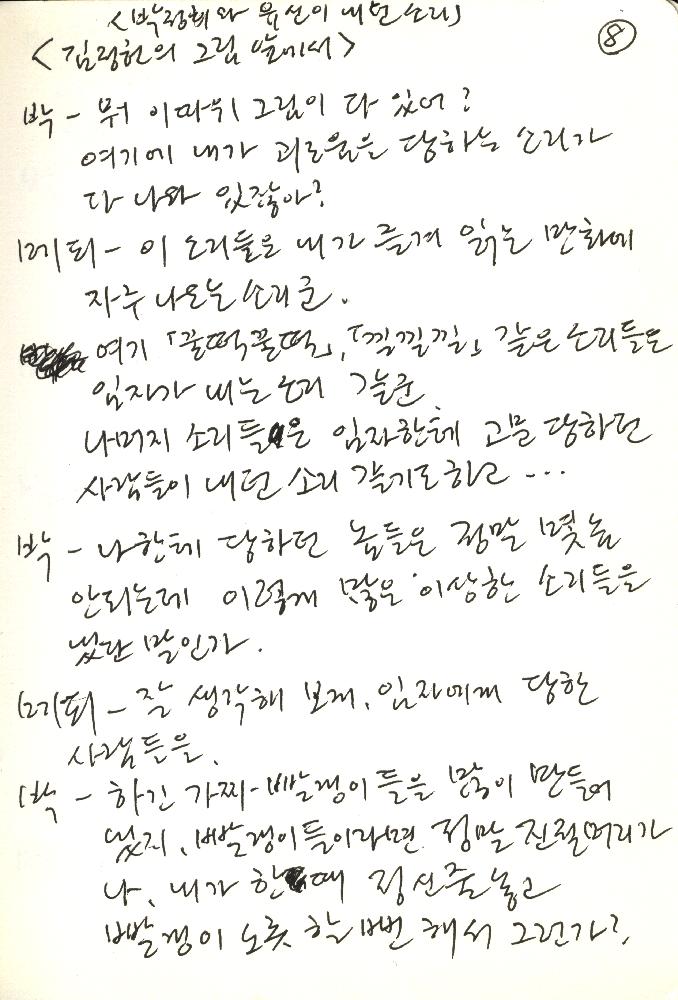 <박정희와 육신이 내던 소리>
⑧
<김정헌의 그림 앞에서>
박 - 뭐 이따위 그림이 다 있어?
여기에 내가 괴로움을 당하는 소리가
다 나와 있잖아?
메퓌 - 이 소리들은 내가 즐겨 읽는 만화에
자주 나오는 소리군.
여기 「꿀떡꿀떡」, 「낄낄낄」 같은 소리들은
임자가 내는 소리 같군
나머지 소리들은 임자한테 고문 당하던
사람들이 내던 소리 같기도하고 ···
박 - 나한테 당하던 놈들은 정말 몇놈
안되는데 이렇게 많은 이상한 소리들을
냈단 말인가.
메퓌 - 잘 생각해 보게. 임자에게 당한
사람들을.
박 - 하긴 가짜-빨갱이들을 많이 만들어
냈지. 빨갱이들이라면 정말 진절머리가
나. 내가 한때 정신줄놓고
빨갱이 노릇 할뻔 해서 그런가?.